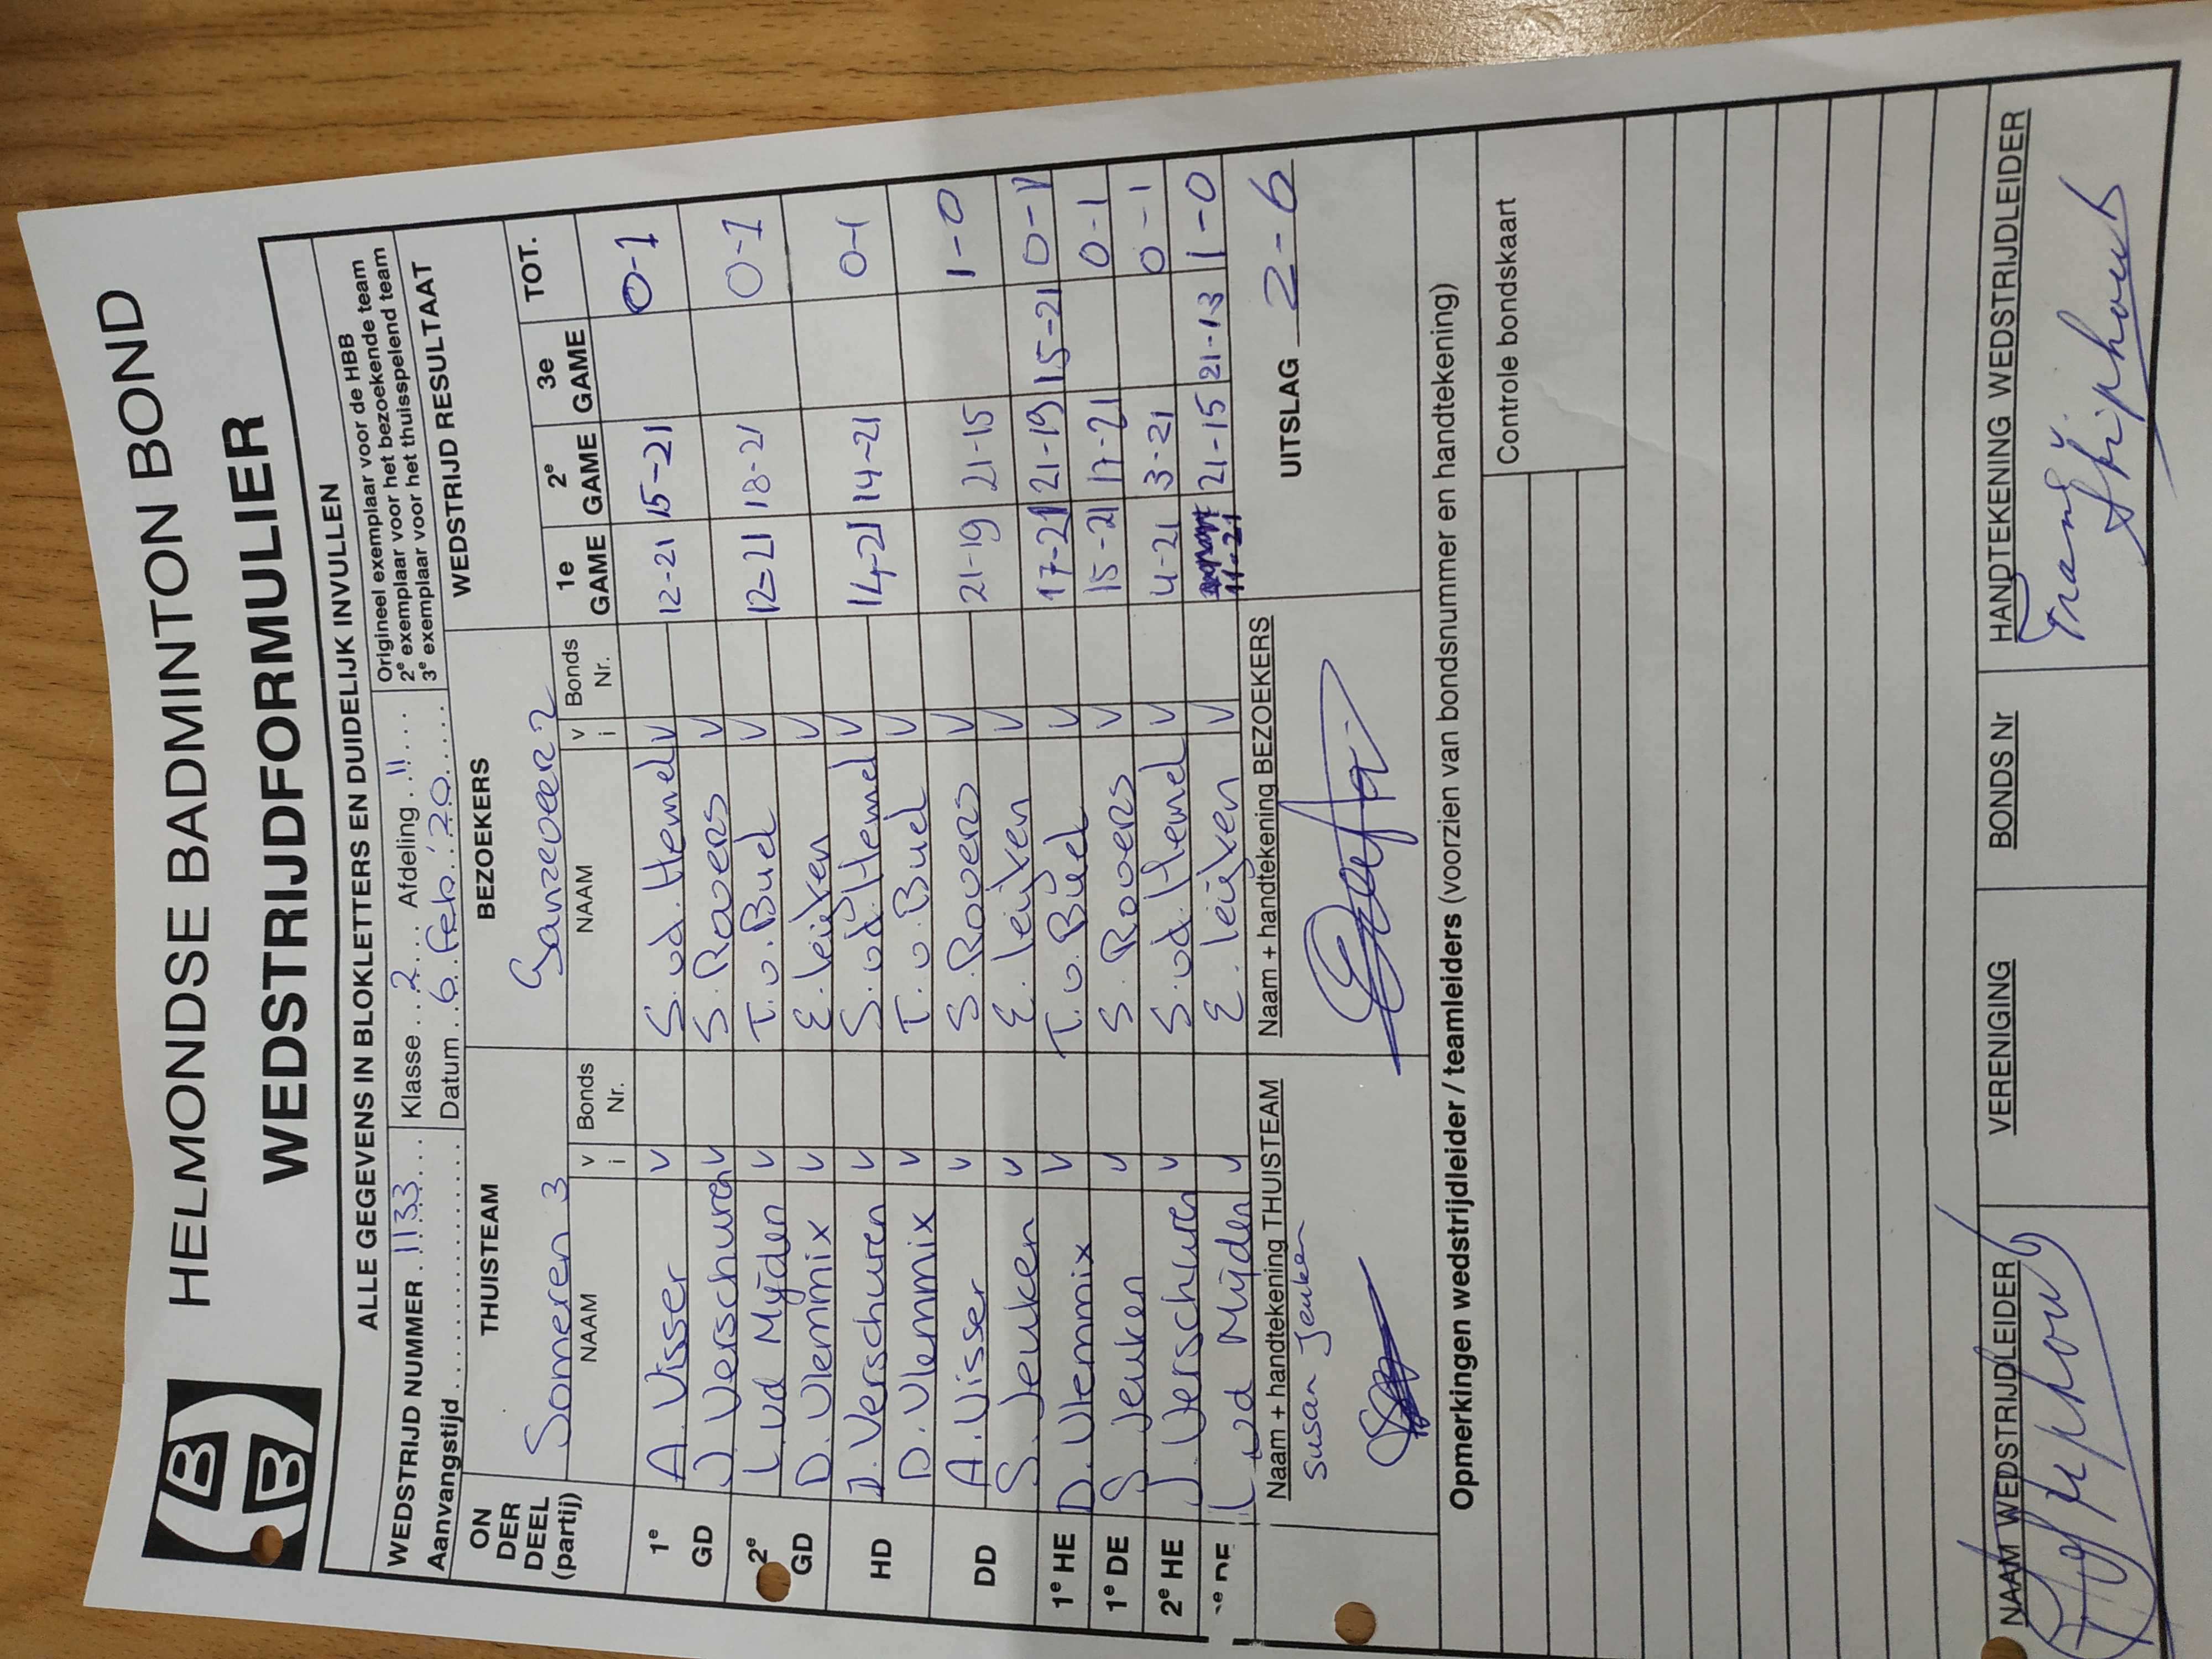 HELMONDSE BADMINTON BOND
WEDSTRIJDFORMULIER
B
B
ALLE GEGEVENS IN BLOKLETTERS EN DUIDELIJK INVULLEN
WEDSTRIJD NUMMER 1133 Klasse 2 Afdeling 11
Aanvangstijd Datum 6 feb '20
Origineel exemplaar voor de HBB
2e exemplaar voor het bezoekende team
3e exemplaar voor het thuisspelend team
ON DER DEEL (partij) THUISTEAM BEZOEKERS WEDSTRIJD RESULTAAT
Someren 3 Ganzeveer 2
NAAM v i Bonds Nr. NAAM v i Bonds Nr. 1e GAME 2e GAME 3e GAME TOT.
1e GD A. Visser v S. vd. Hemel v 12-21 15-21 0-1
J. Verschuren v S. Rovers v
2e GD L. vd Mijden v T. v. Buel v 12-21 18-21 0-1
D. Vlemmix v E. Leijken v
HD J. Verschuren v S. vd Hemel v 14-21 14-21 0-1
D. Vlemmix v T. v. Buel v
DD A. Visser v S. Rovers v 21-19 21-15 1-0
S. Jeuken v E. Leijken v
1e HE D. Vlemmix v T. v. Buel v 17-21 21-19 15-21 0-1
1e DE S. Jeuken v S. Rovers v 15-21 17-21 0-1
2e HE J. Verschuren v S. vd. Hemel v 4-21 3-21 0-1
e DE L. vd Mijden v E. Leijken v 11-21 21-15 21-13 1-0
Naam + handtekening THUISTEAM Naam + handtekening BEZOEKERS UITSLAG 2-6
Susan Jeuken
Opmerkingen wedstrijdleider / teamleiders (voorzien van bondsnummer en handtekening)
Controle bondskaart
NAAM WEDSTRIJDLEIDER VERENIGING BONDS Nr HANDTEKENING WEDSTRIJDLEIDER
Frans
Stiphout